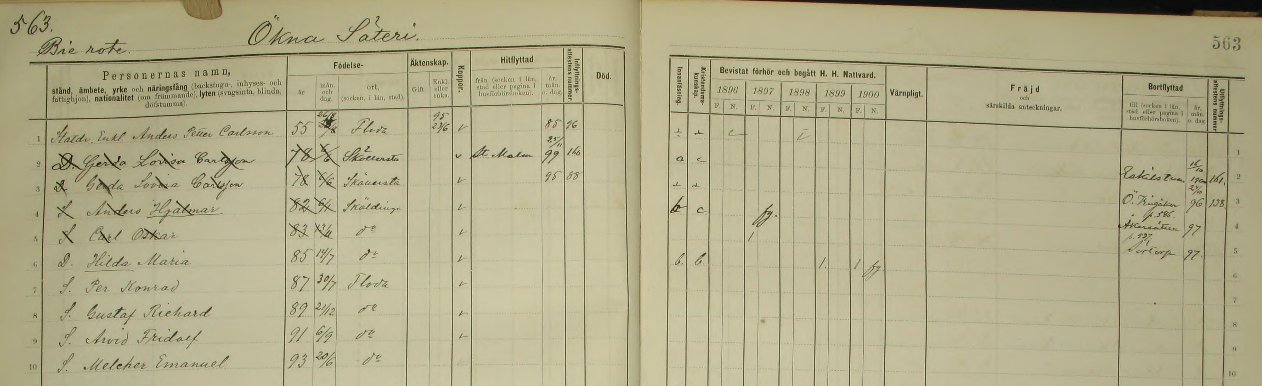 563.
Bie rote.
Ökna Säteri.
Personernas namn,
stånd, ämbete, yrke och näringsfång (backstugu-, inhyses- och
fattighjon), nationalitet (om främmande), lyten (svagsinta, blinda,
döfstumma).
Födelse-
år
mån. och dag.
ort,
(socken, i län, stad).
Äktenskap.
Gift.
Enkl. eller enka.
Koppor.
Hitflyttad
från (socken i län, stad eller pagina i husförhörsboken).
år, mån. o. dag.
Inflyttnings-attestens nummer
Död.
1 Statdr. Enkl. Anders Petter Carlsson 55 Floda 95 23/6 v 85 96
2 D. Gerda Lovisa Carlsson 78 6/6 Sköldinge v St Malm 25/11 99 160
3 D. Gerda Lovisa Carlsson 78 6/6 v 95 88
4 S. Anders Hjalmar 82 Sköldinge v
5 S. Carl Oskar 83 do v
6 D. Hilda Maria 85 14/7 do v
7 S. Per Konrad 87 30/7 Floda v
8 S. Gustaf Richard 89 22/12 do v
9 S. Arvid Fridolf 91 6/9 do v
10 S. Melcher Emanuel 93 20/6 do v
563
Innanläsning.
Kristendoms-kunskap.
Bevistat förhör och begått H. H. Nattvard.
1896 1897 1898 1899 1900
F. N. F. N. F. N. F. N. F. N.
Värnpligt.
Fräjd
och
särskilda anteckningar.
Bortflyttad
till (socken i län, stad eller pagina i husförhörsboken).
år, mån. o. dag.
Utflyttnings-attestens nummer
1
a 2
Eskilstuna 1900 161.
3
b c fg. Ö. Vingåker 96 138
p. 586.
4
1 97
5
97.
b. b. 1. 1 fg 6
7
8
9
10